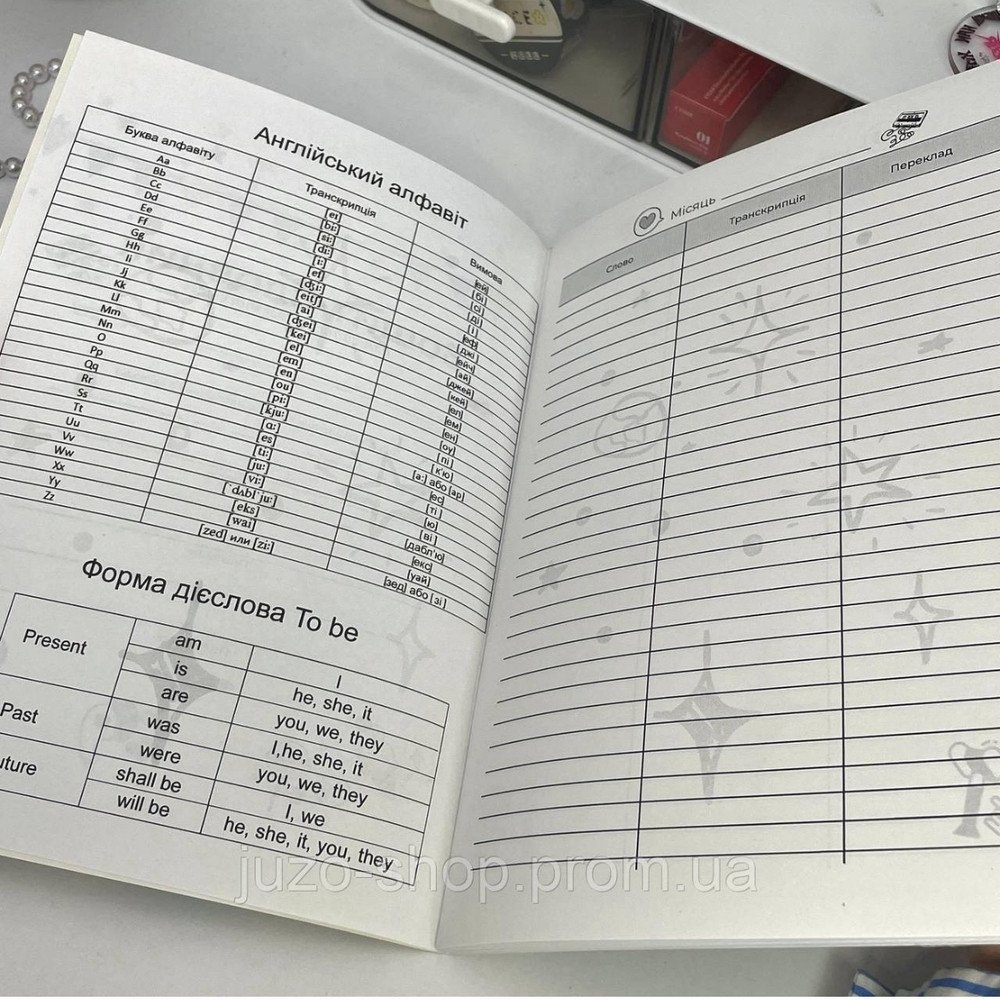 Англійський алфавіт
Буква алфавіту Транскрипція Вимова
Aa [ei] [ей]
Bb [bi:] [бі]
Cc [si:] [сі]
Dd [di:] [ді]
Ee [i:] [і]
Ff [ef] [еф]
Gg [dʒi:] [джі]
Hh [eitʃ] [ейч]
Ii [ai] [ай]
Jj [dʒei] [джей]
Kk [kei] [кей]
Ll [el] [ел]
Mm [em] [ем]
Nn [en] [ен]
O [ou] [оу]
Pp [pi:] [пі]
Qq [kju:] [к'ю]
Rr [ɑ:] [а:] або [ар]
Ss [es] [ес]
Tt [ti:] [ті]
Uu [ju:] [ю]
Vv [vi:] [ві]
Ww [`dʌbl`ju:] [дабл'ю]
Xx [eks] [екс]
Yy [wai] [уай]
Zz [zed] или [zi:] [зед] або [зі]
Форма дієслова To be
Present am I
is he, she, it
are you, we, they
Past was I,he, she, it
were you, we, they
uture shall be I, we
will be he, she, it, you, they
Місяць
Слово Транскрипція Переклад
01
juzo-shop.prom.ua